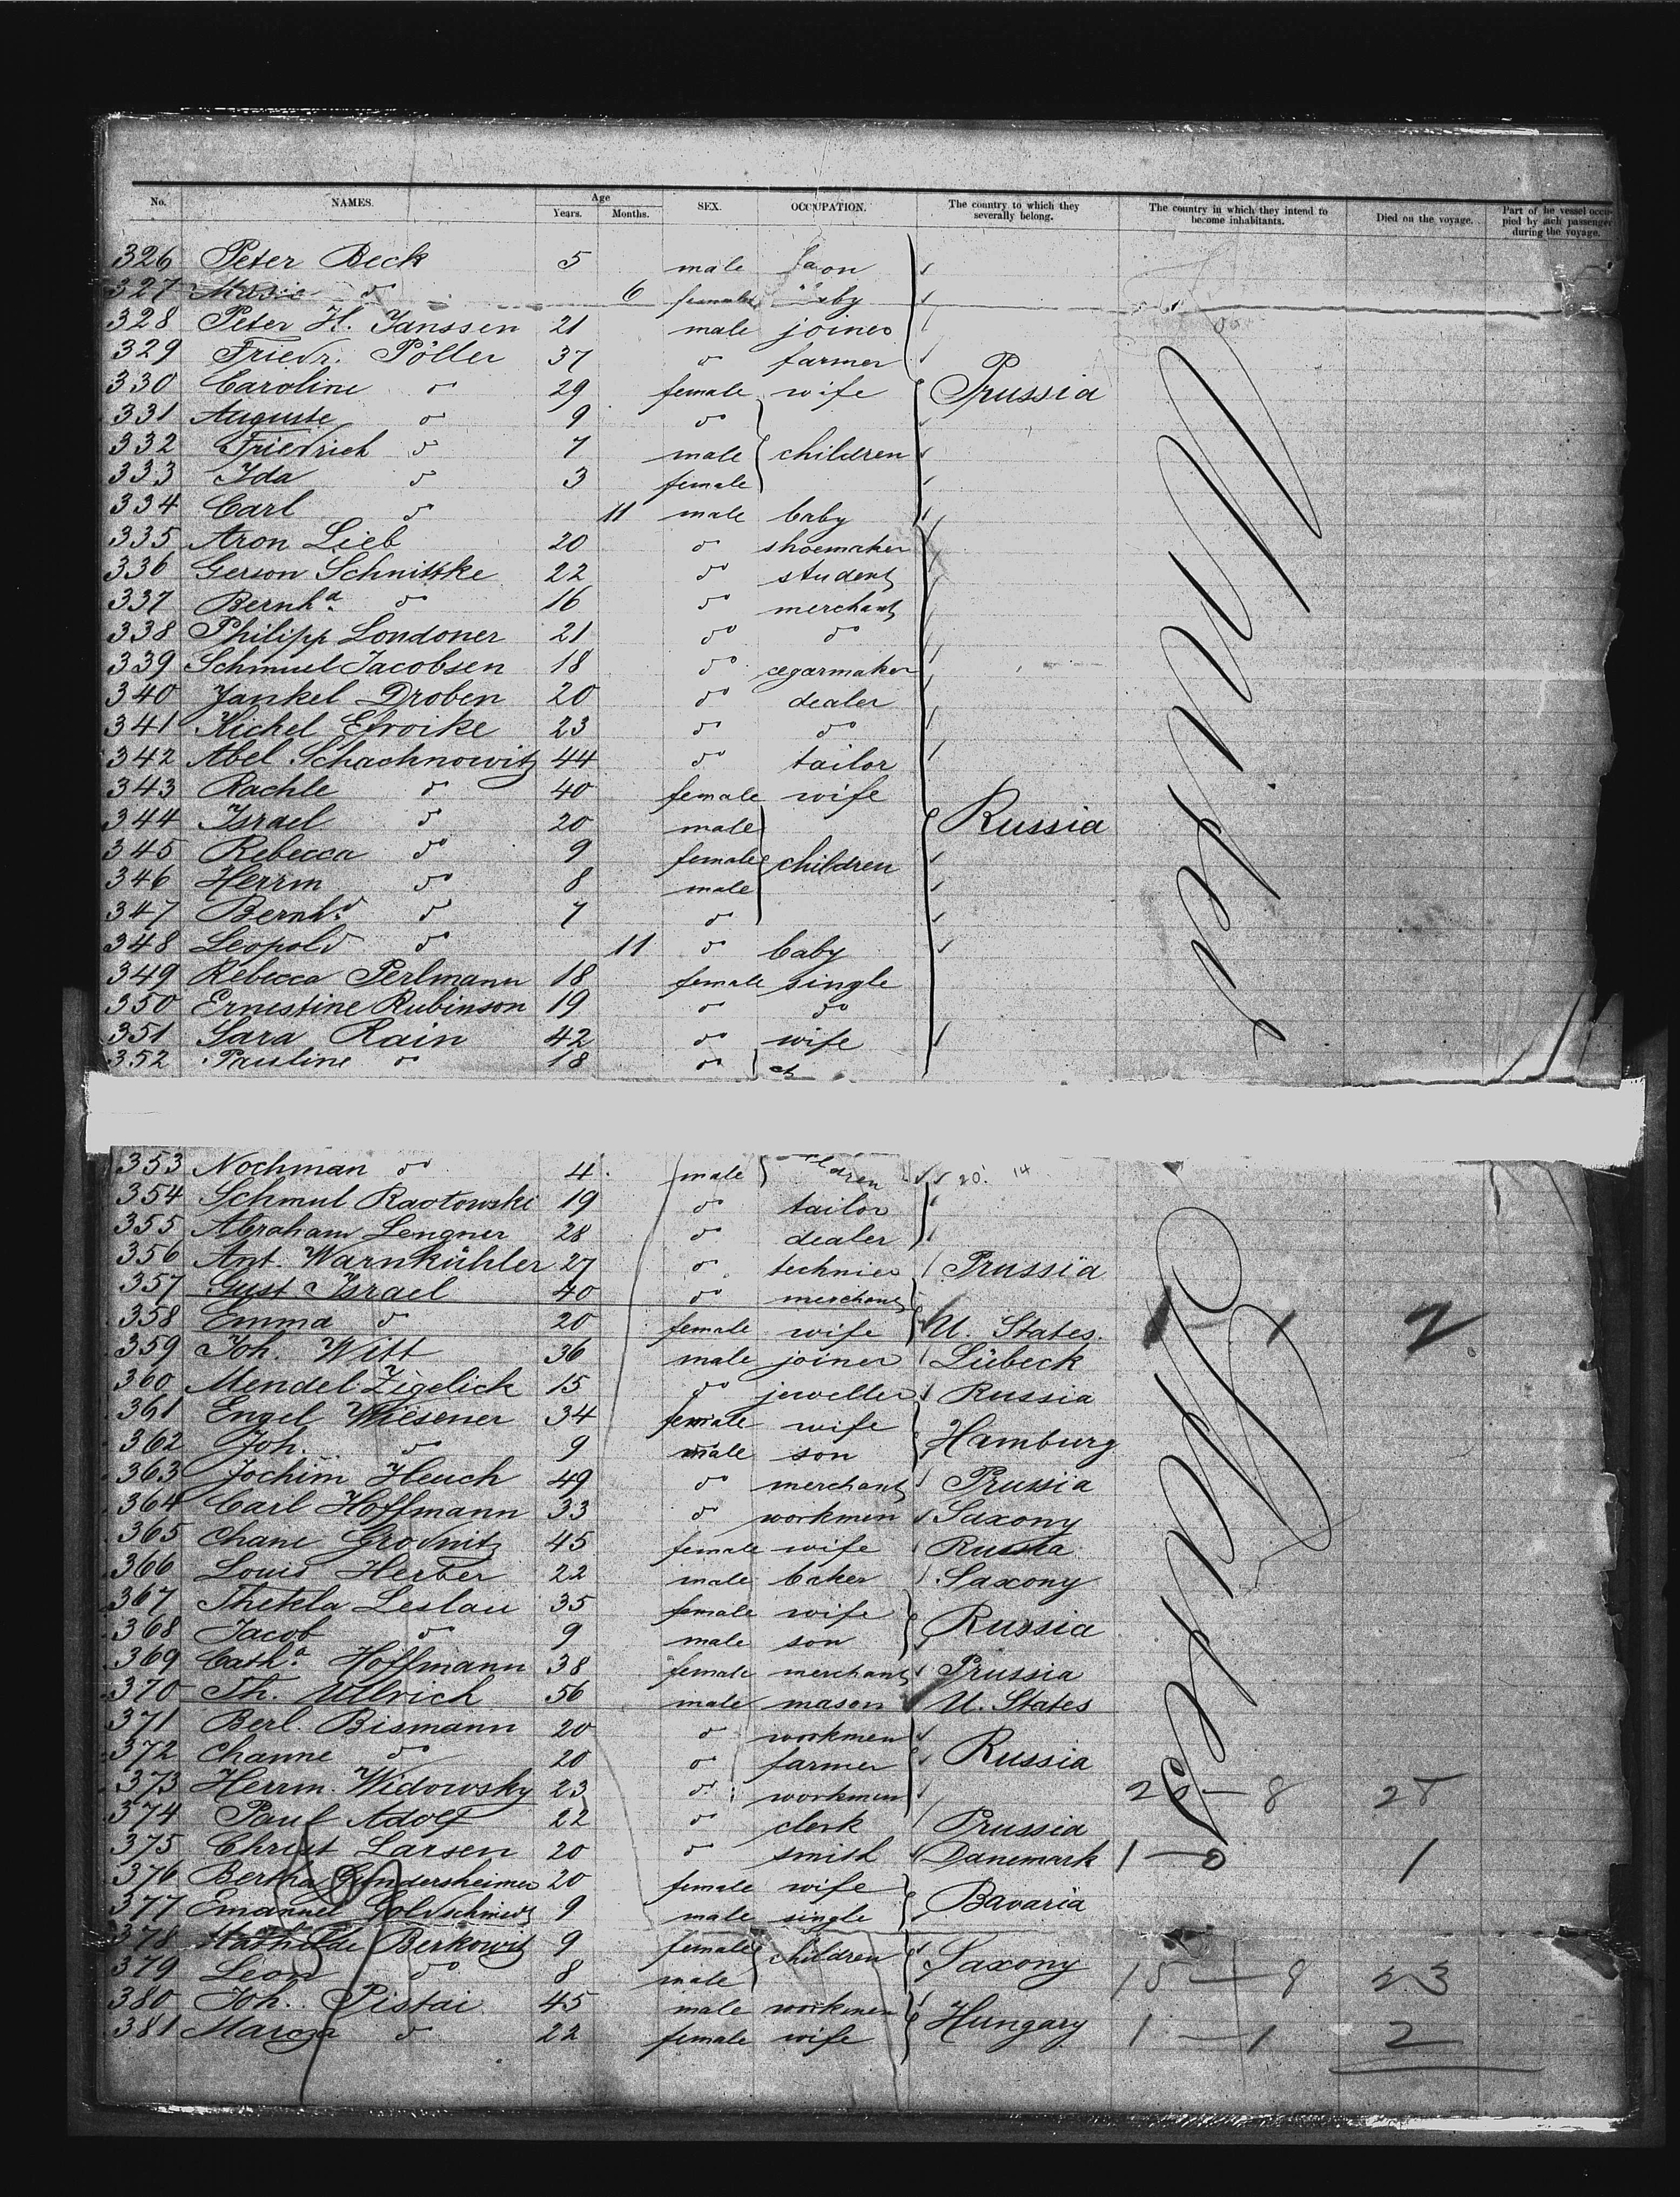 No. NAMES. Age Years. Months. SEX. OCCUPATION. The country to which they severally belong. The country in which they intend to become inhabitants. Died on the voyage. Part of the vessel occupied by each passenger during the voyage.
326 Peter Beck 5 male son
327 do 6 female baby
328 Peter H. Janssen 21 male joiner
329 Friedr. Pöller 37 do farmer
330 Caroline do 29 female wife Prussia
331 Auguste do 9 do
332 Friedrich do 7 male children
333 Ida do 3 female
334 Carl do 11 male baby
335 Aron Lieb 20 do shoemaker
336 Gerson Schnittke 22 do student
337 Bernhd. do 16 do merchant
338 Philipp Londoner 21 do do
339 Schmuel Jacobsen 18 do cegarmaker
340 Jankel Droben 20 do dealer
341 Kichel Efroike 23 do do
342 Abel Schachnowitz 44 do tailor
343 Rachle do 40 female wife
344 Israel do 20 male Russia
345 Rebecca do 9 female children
346 Herrm do 8 male
347 Bernhd. do 7 do
348 Leopold do 11 do baby
349 Rebecca Perlmann 18 female single
350 Ernestine Rubinson 19 do do
351 Sara Rain 42 do wife
352 Pauline do 18 do
353 Nochman do 4 male children 20. 14
354 Schmul 19 do tailor
355 Abraham Lengner 28 do dealer
356 Ant. Warnkühler 27 do technier Prussia
357 Gust Israel 40 do merchant
358 Emma do 20 female wife U. States. 1 1 2
359 Joh. Witt 36 male joiner Lübeck
360 Mendel Zigelick 15 do jeweller Russia
361 Engel Wiesener 34 female wife
362 Joh. do 9 male son Hamburg
363 Jochim Heuch 49 do merchant Prussia
364 Carl Hoffmann 33 do workmen Saxony
365 Chane Grodnitz 45 female wife Russia
366 Louis Herber 22 male baker Saxony
367 Thekla Leslau 35 female wife
368 Jacob do 9 male son Russia
369 Catha. Hoffmann 38 female merchant Prussia
370 Th. Ullrich 56 male mason U. States
371 Berl. Bismann 20 do workmen
372 Channe do 20 do farmer Russia
373 Herrm. Widowsky 23 do workmen 20 — 8 28
374 Paul Adolf 22 do clerk Prussia
375 Christ Larsen 20 do smith Danemark 1 — 0 1
376 Bertha Gundersheimer 20 female wife
377 Emanuel Goldschmidt 9 male single Bavaria
378 Mathilde Berkowitz 9 female children
379 Leon do 8 male Saxony 15 — 8 23
380 Joh. Pistai 45 male workmen
381 Marcza do 22 female wife Hungary 1 — 1 2